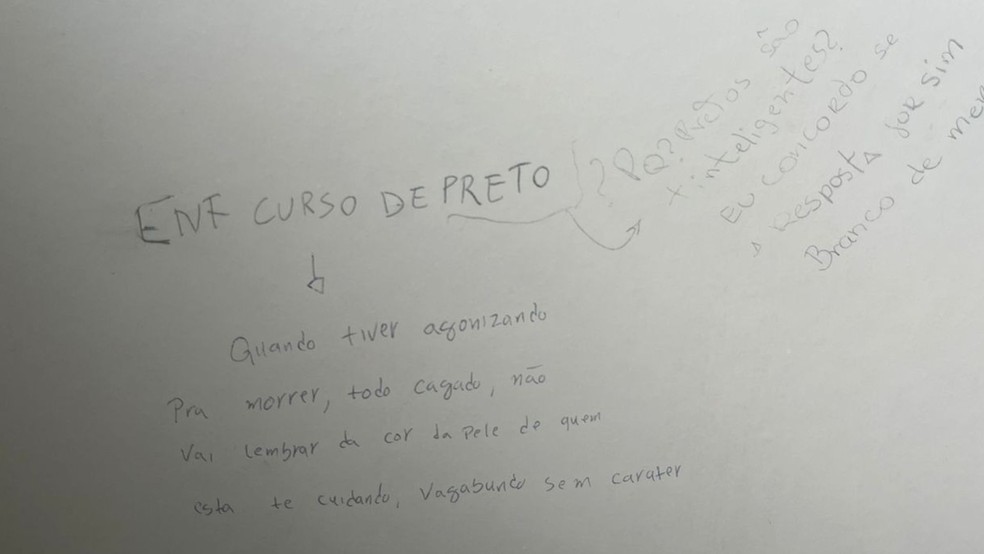 ENF CURSO DE PRETO
? PQ? Pretos são
+ inteligentes?
EU CONCORDO se
a Resposta FOR sim
Branco de
Quando tiver agonizando
Pra morrer, todo cagado, não
Vai lembrar da cor da pele de quem
esta te cuidando, Vagabundo sem carater